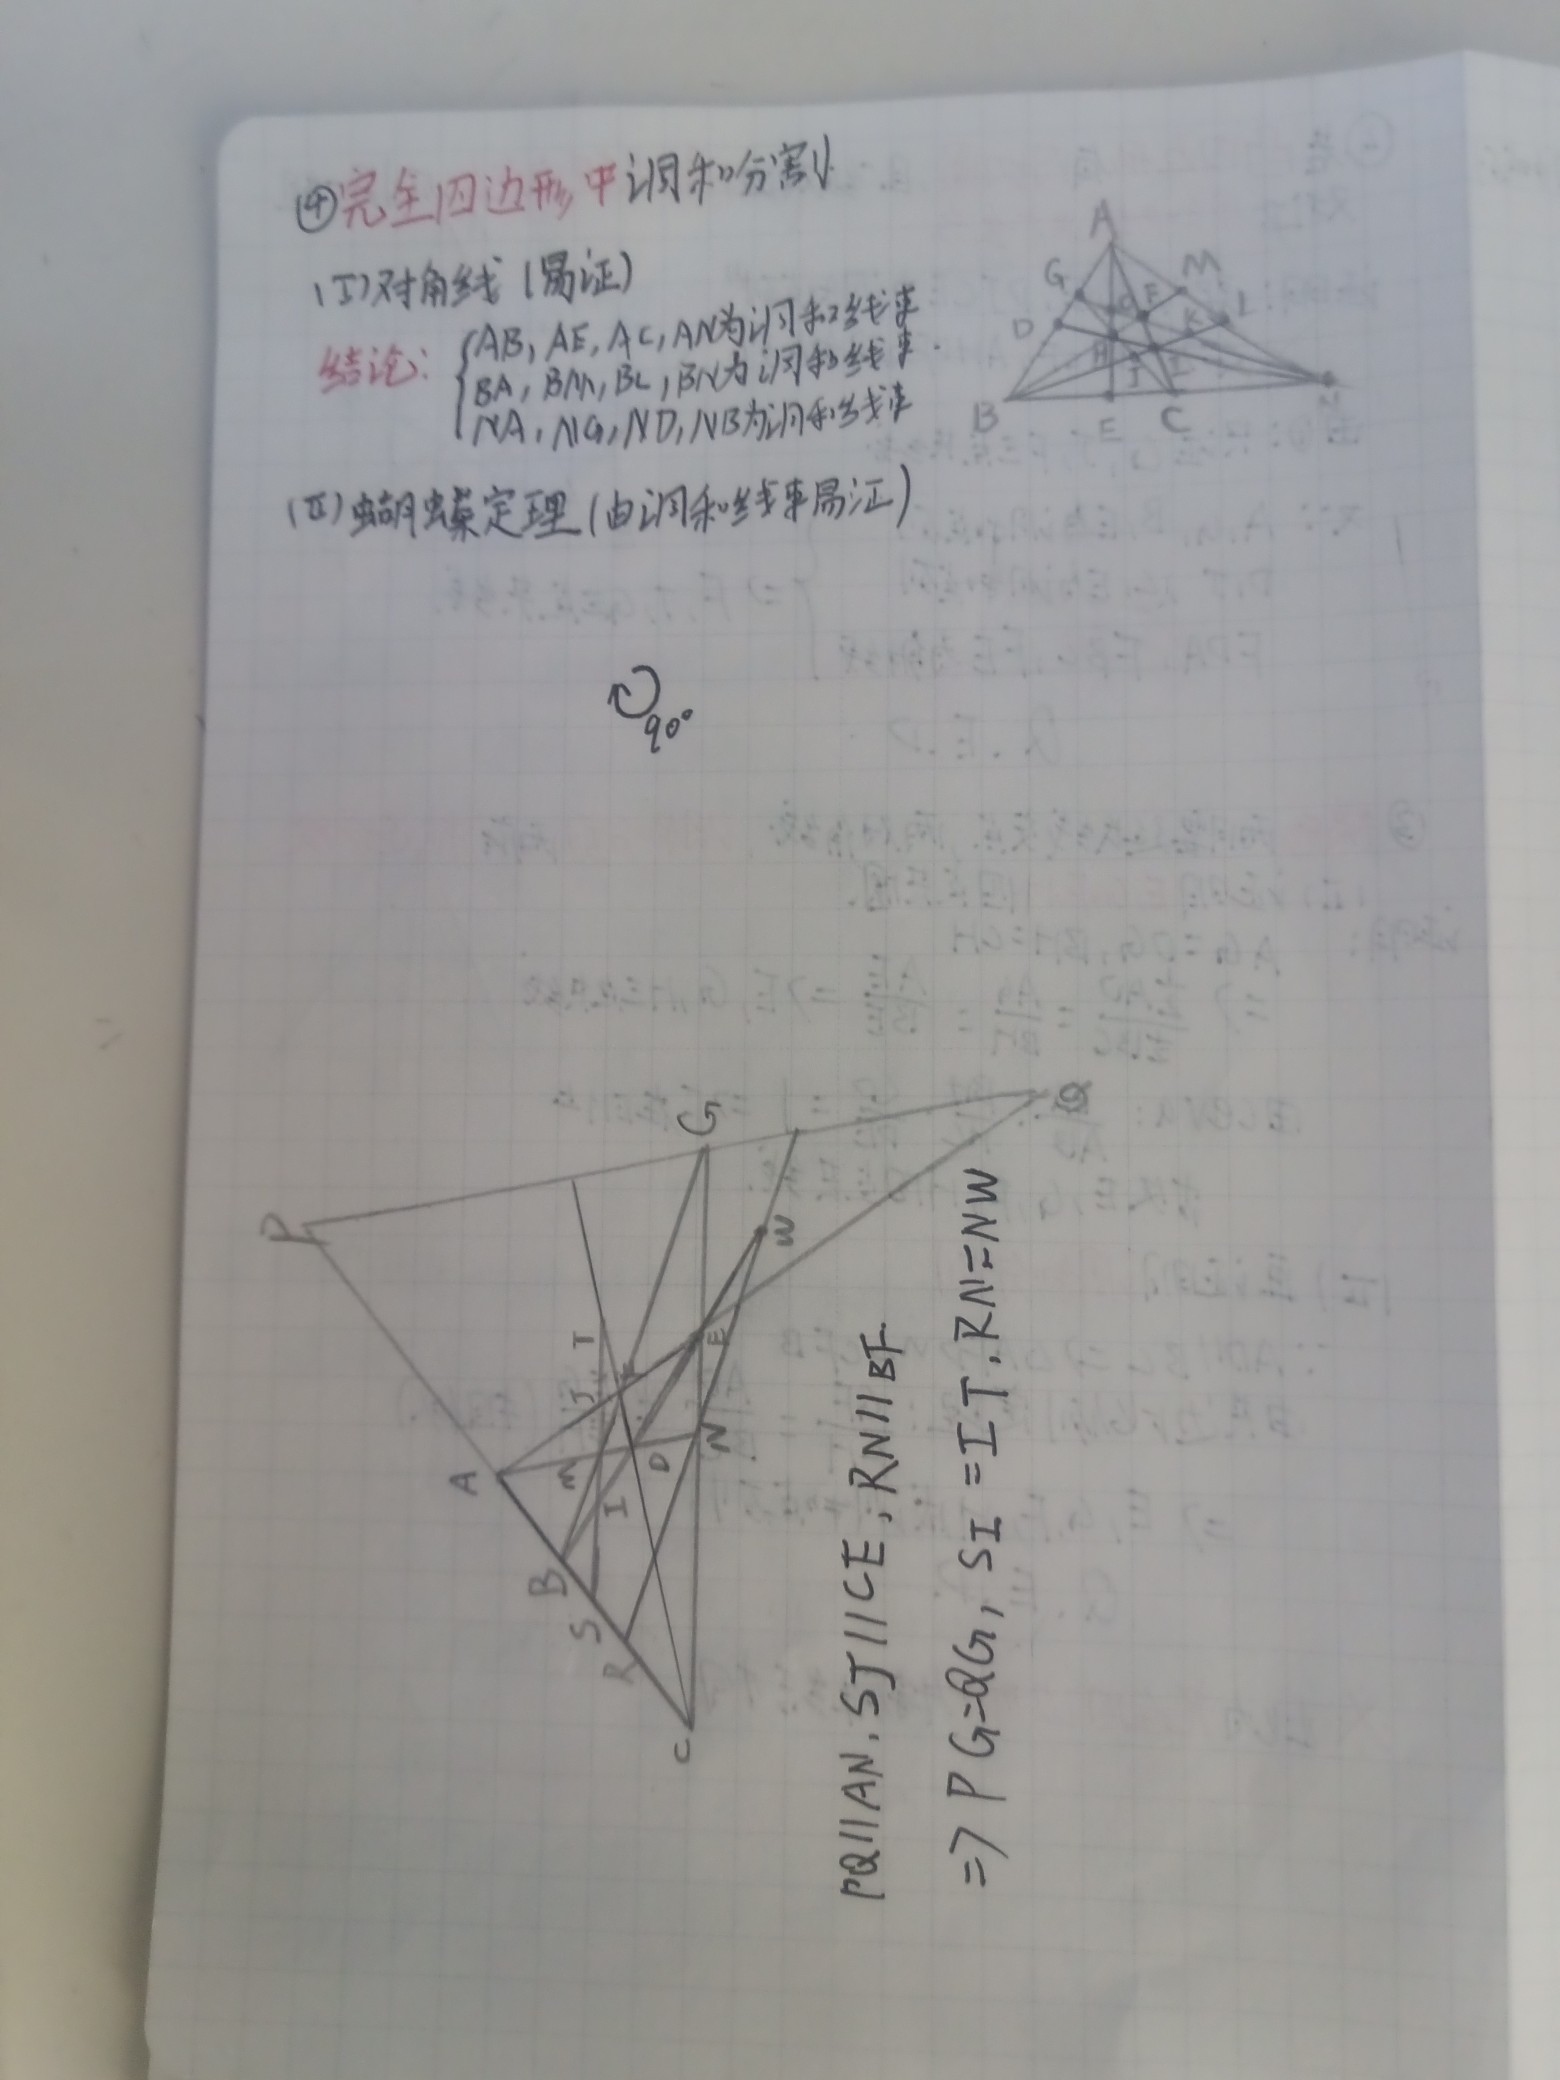 ④完全四边形中调和分割
(I)对角线(易证)
结论:
AB, AE, AC, AN为调和线束
BA, BM, BL, BN为调和线束.
NA, NG, ND, NB为调和线束
(II)蝴蝶定理(由调和线束易证)
A
G
M
D
F
L
K
H
J
I
B
E
C
N
90°
P
G
Q
W
T
E
J
F
A
M
D
N
I
B
S
R
C
PQ//AN, SJ//CE, RN//BF
=> PG=QG, SI=IT, RN=NW